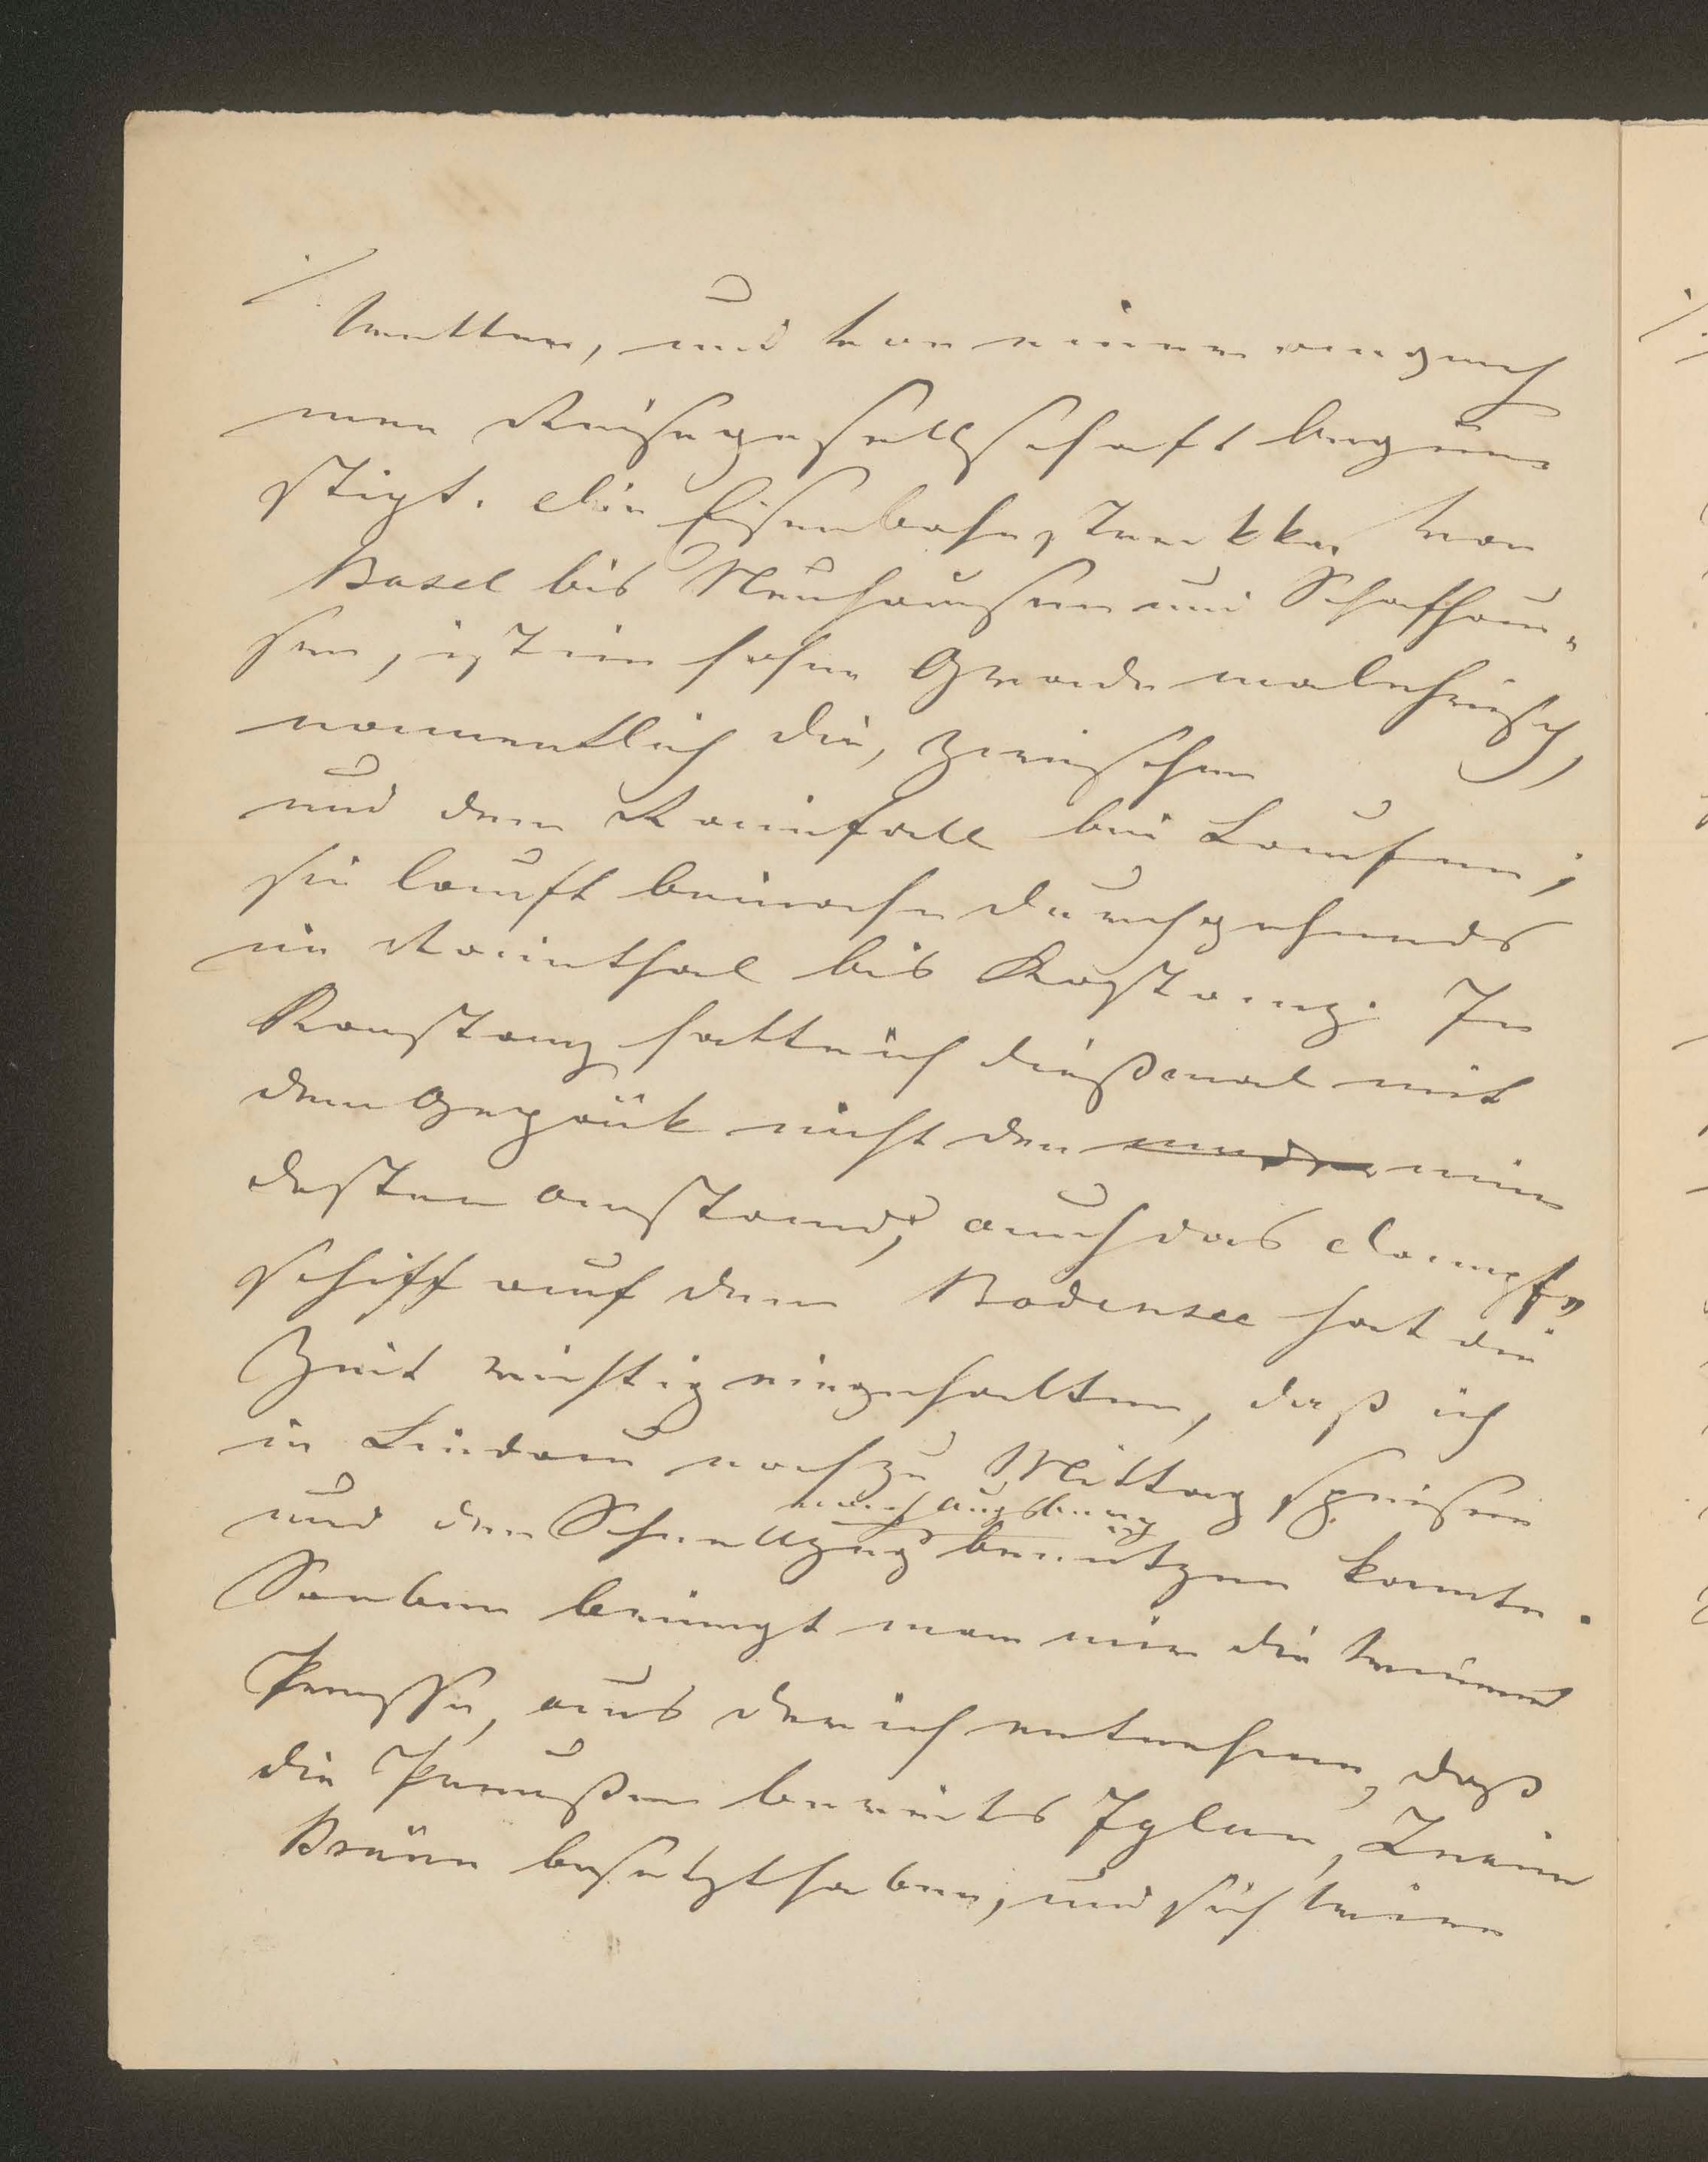 ./.
Wetter, und von einer angeneh
men Reisegesellschaft begün
stigt. Die Eisenbahnstrekke von
Basel bis Neuhausen und Schafhau-
sen, ist im hohen Grade malehrisch,
namentlich die, zwischen
und dem Rainfall bei Laufen;
sie lauft beinahe durchgehends
im Rainthal bis Kostanz. In
Konstanz hatte ich dießmal mit
dem Gepäck nicht den min
desten Anstand; auch das Dampf„
schiff auf dem Bodensee hat die
Zeit richtig eingehalten, daß ich
in Lindau noch zu Mittag speisen
nach Augsburg
und den Schnellzug benützen konnte.
Soeben bringt man mir die Wiener
Presse, aus der ich entnehme, daß
die Preußen bereits Iglau, Znaim
Brünn besetzt haben, und sich Wien